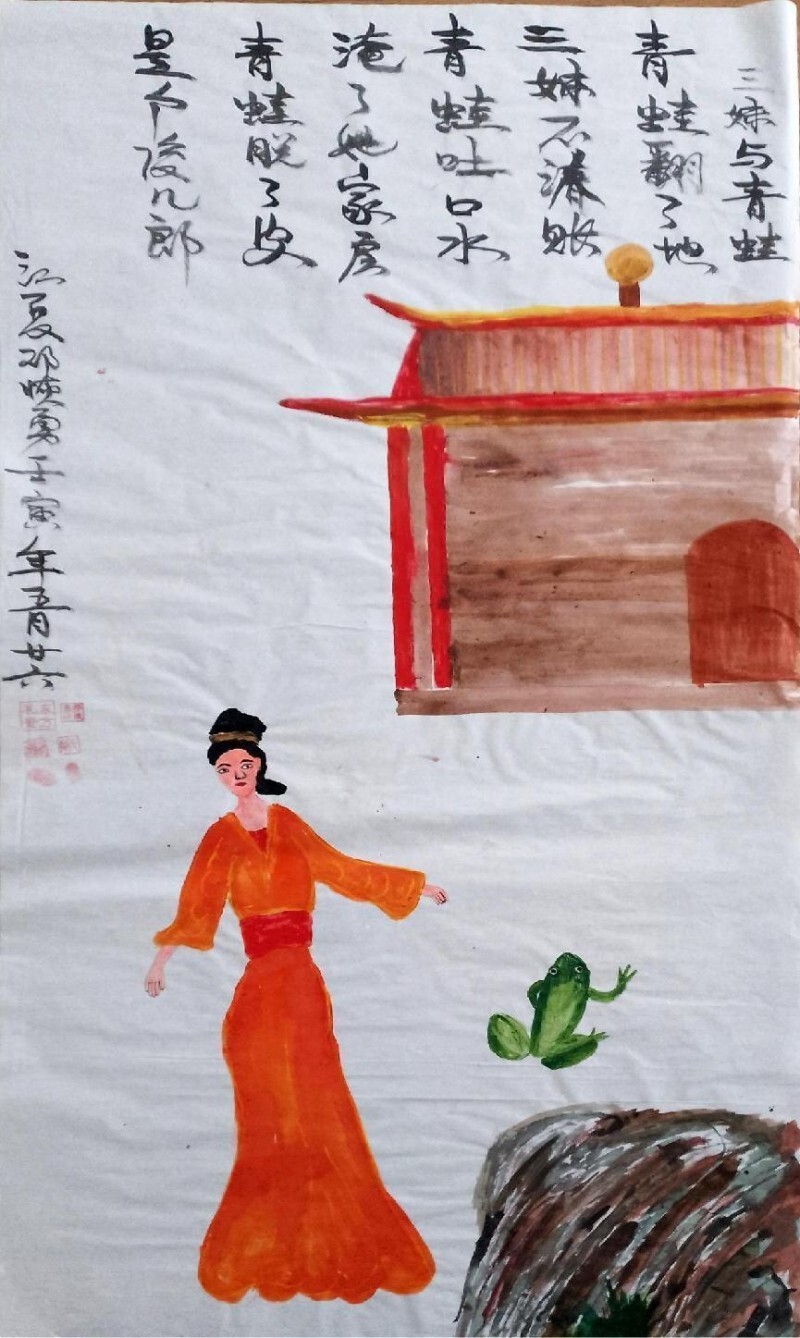 三妹与青蛙
青蛙翻了地
三妹不账
青蛙吐口水
淹了她家房
青蛙脱了皮
是个俊儿郎
江夏邓映勇壬寅年五月廿六